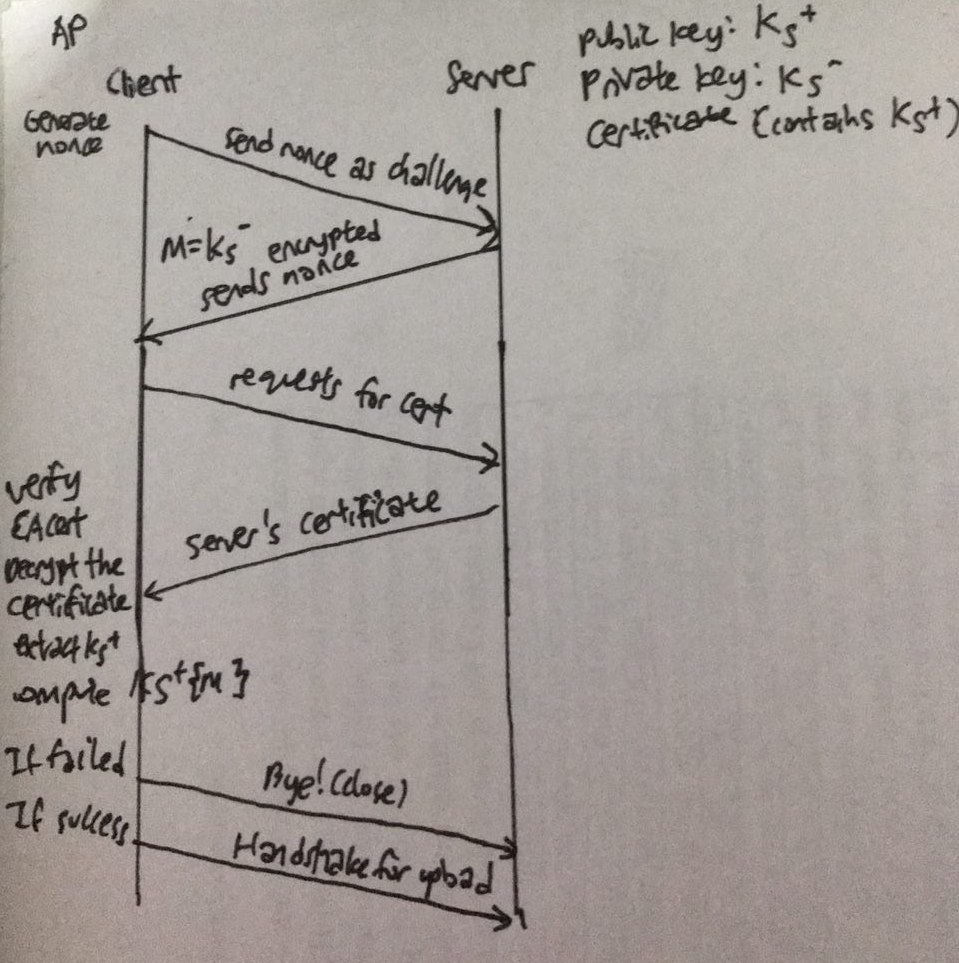 AP
Client
Server
public key: Ks+
private key: Ks-
certificate (contains Ks+)
Generate
nonce
send nonce as challenge
M=Ks- encrypted
sends nonce
requests for cert
server's certificate
verify
CA cert
Decrypt the
certificate
extract Ks+
compute Ks+{M}
If failed
Bye! (close)
If success
Handshake for upload